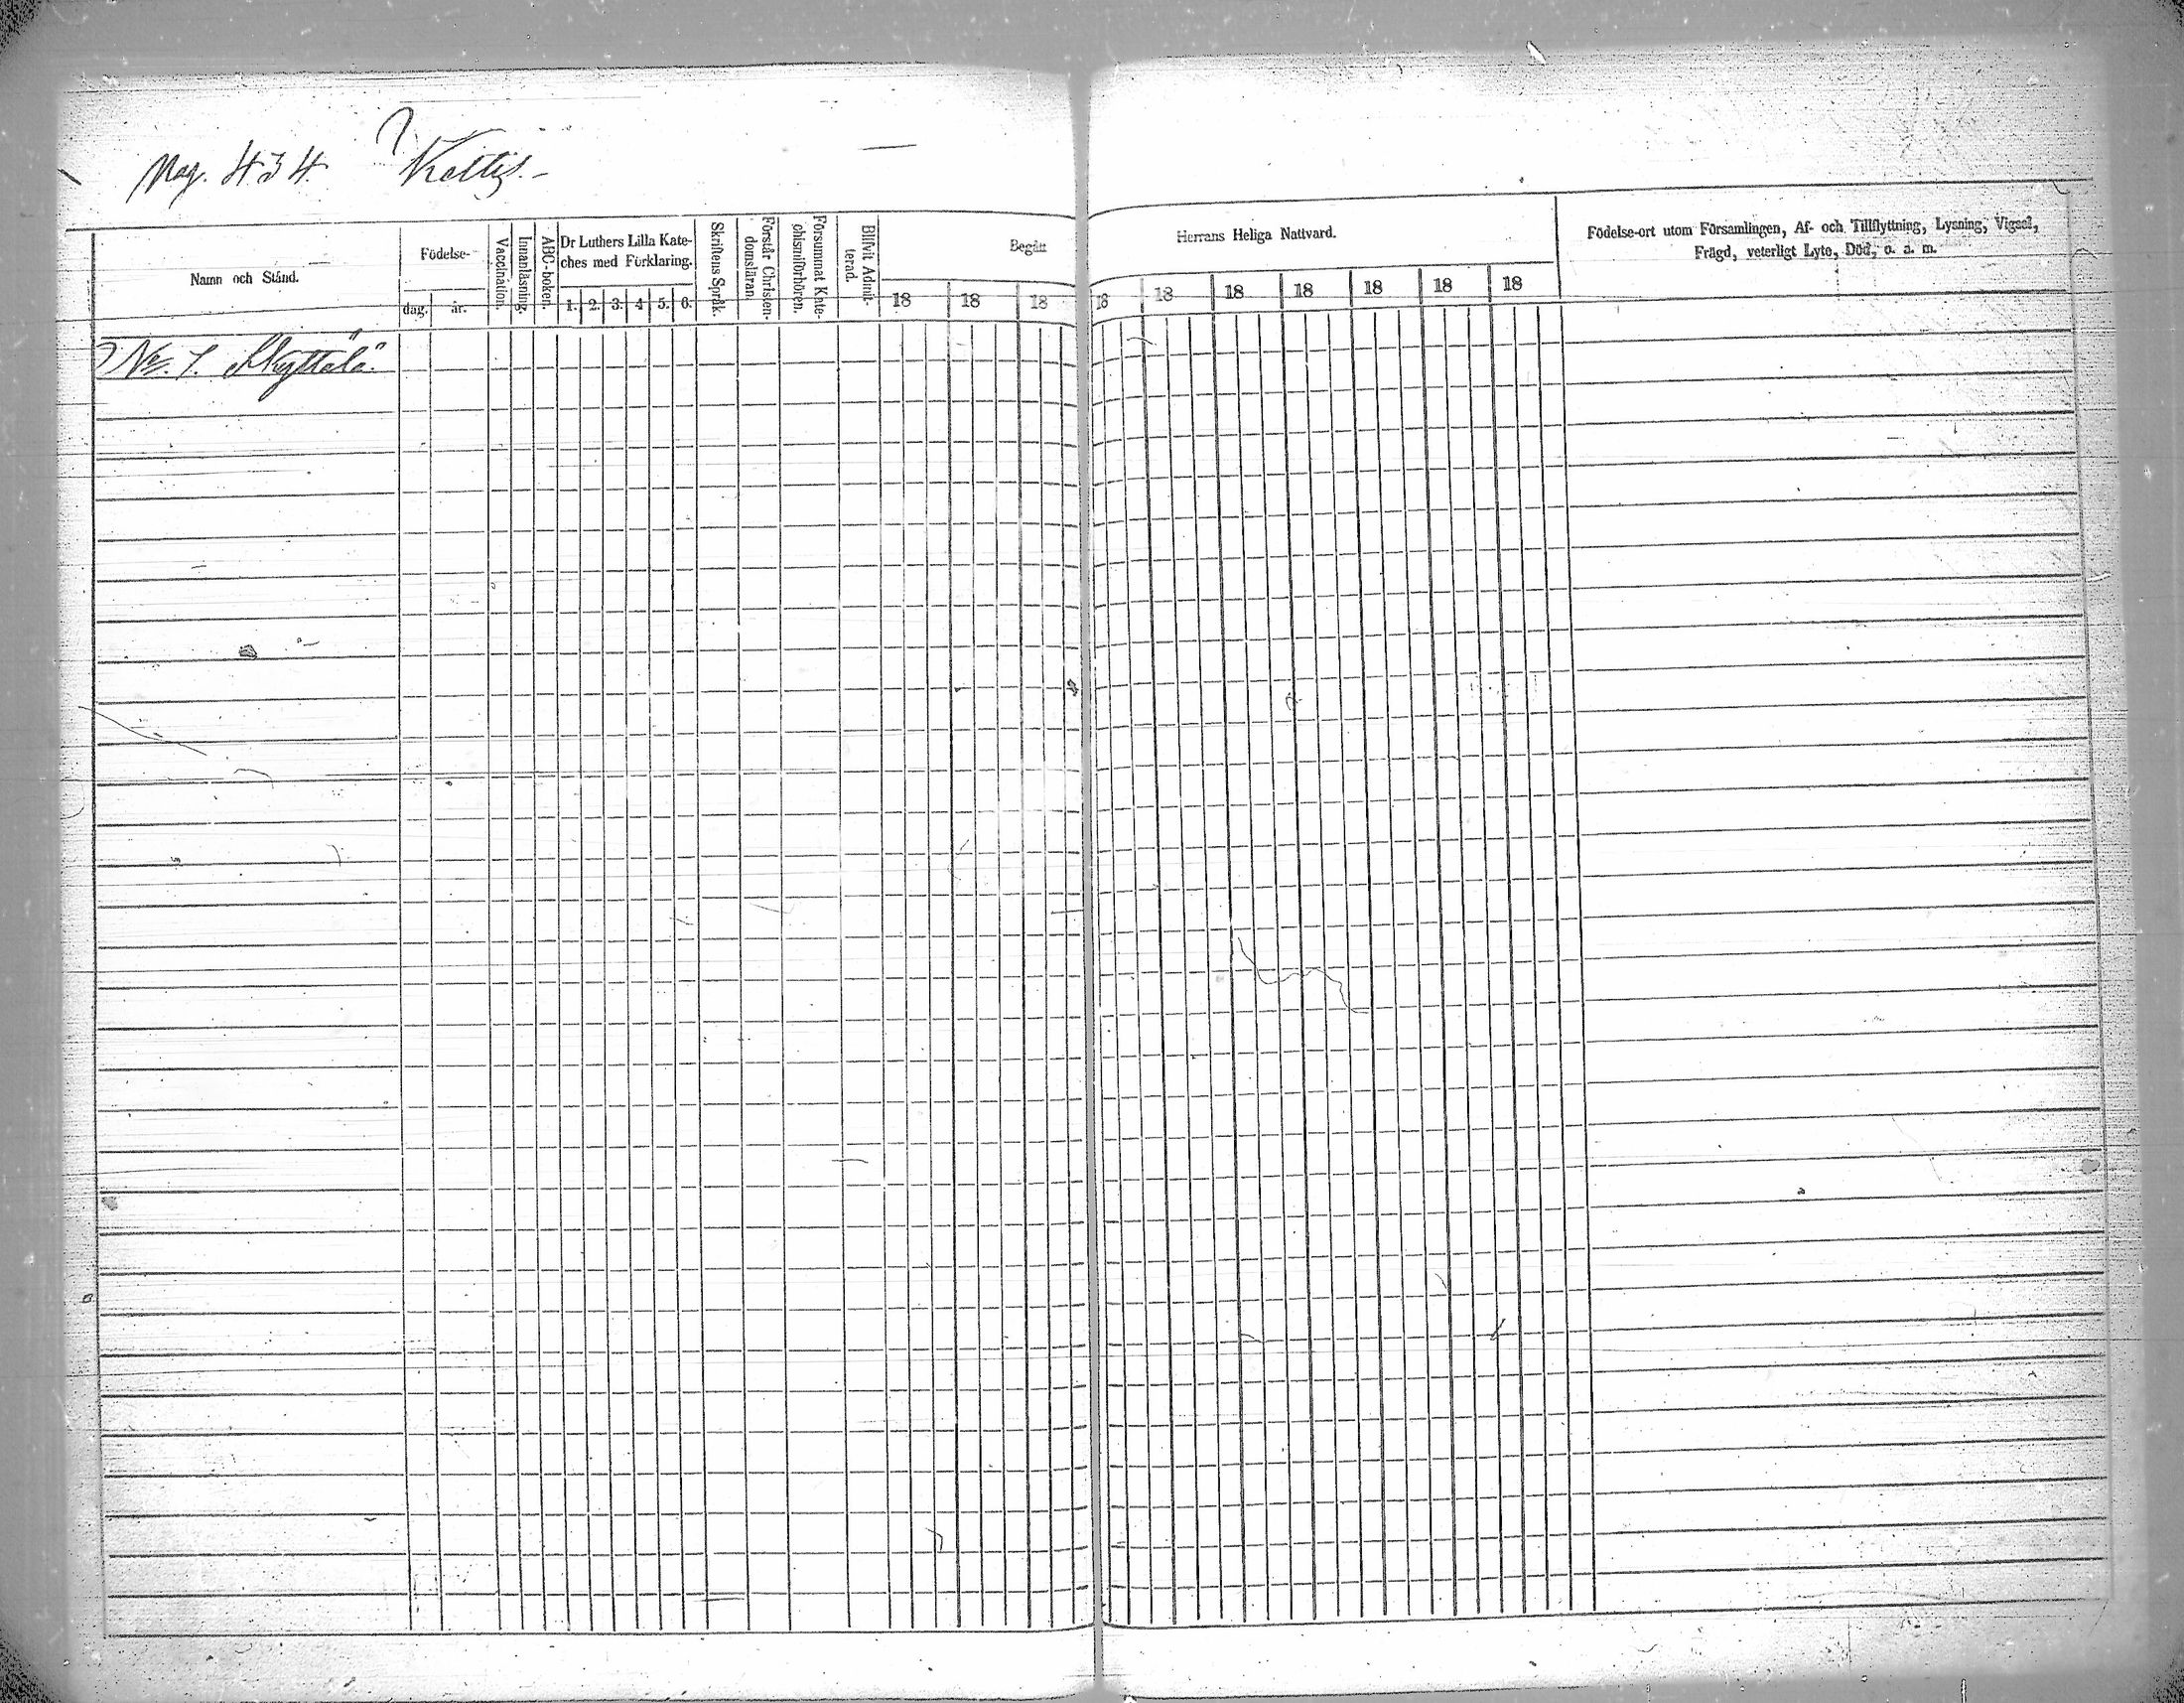 Pag. 434. Kettis.
Namn och Stånd.
Födelse-
dag. år.
Vaccination.
Innanläsning.
ABC-boken.
Dr Luthers Lilla Kate-
ches med Förklaring.
1. 2. 3. 4 5. 6.
Skriftens Språk.
Förstår Christen-
domsläran.
Försummat Kate-
chismiförhören.
Blifvit Admit-
terad.
Begått
18 18 18
Herrans Heliga Nattvard.
18 18 18 18 18 18 18
Födelse-ort utom Församlingen, Af- och Tillflyttning, Lysning, Vigsel,
Frägd, veterligt Lyte, Död, o. a. m.
No. 1.